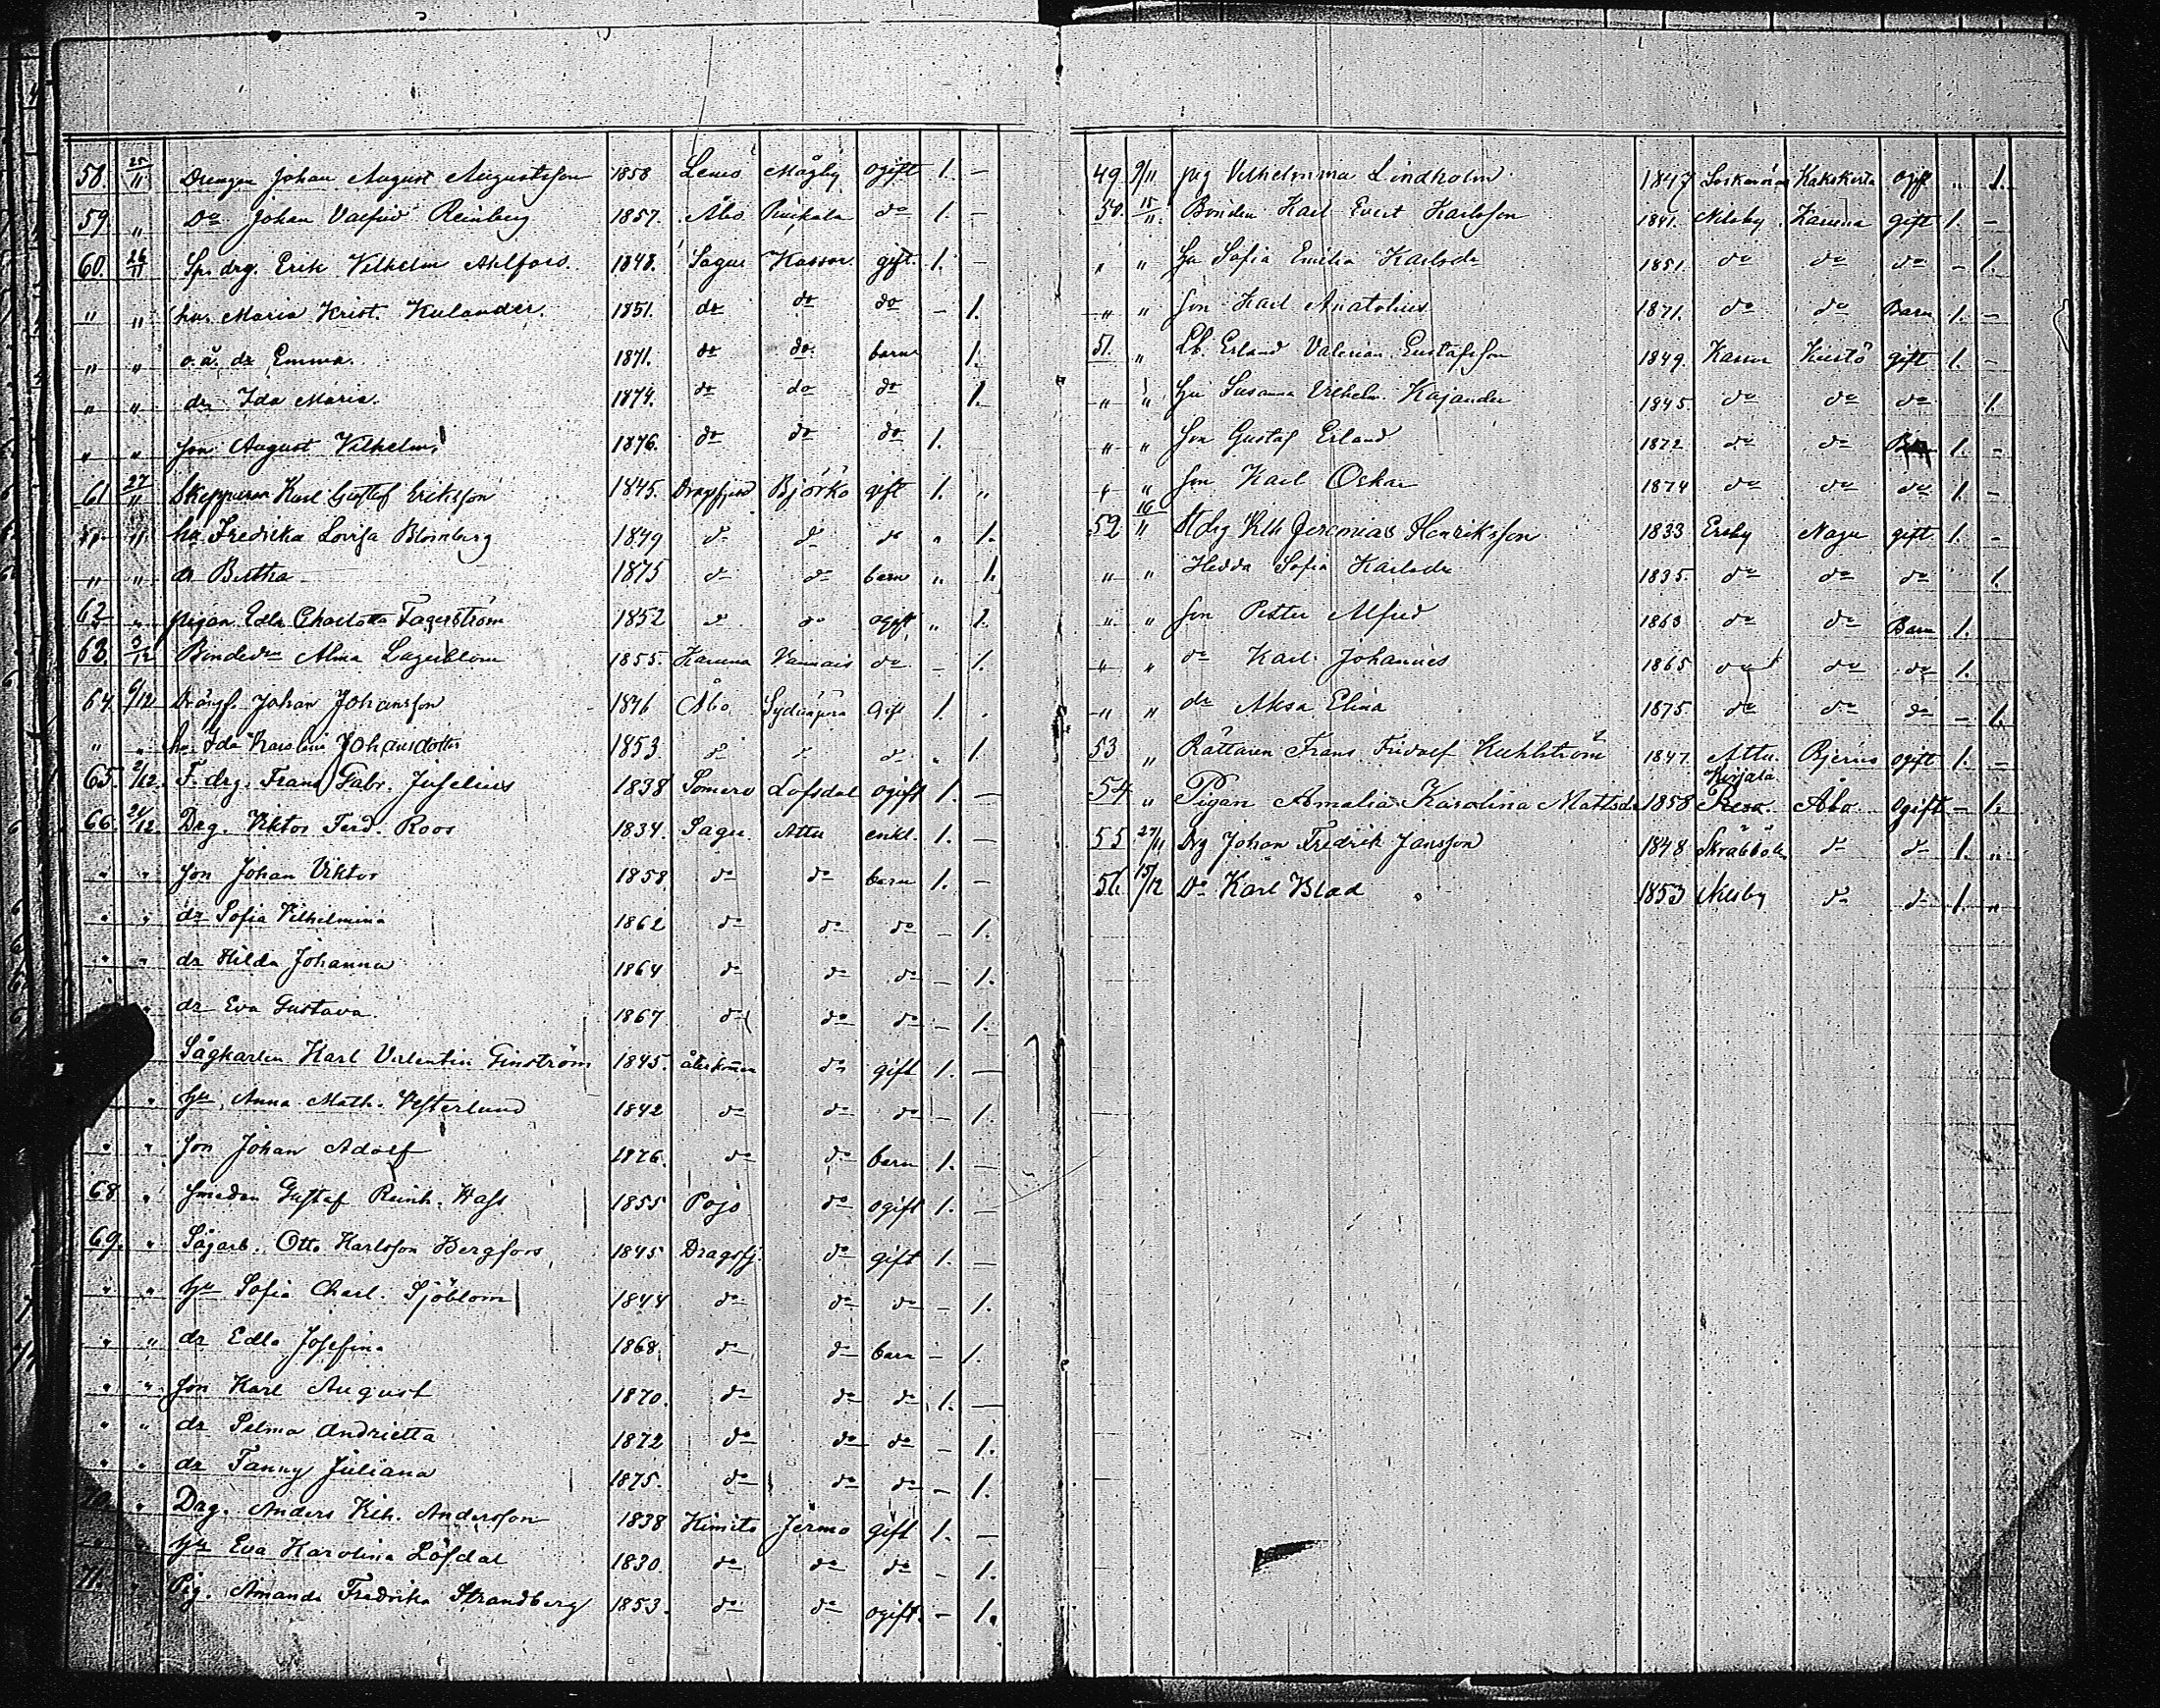 58. 25/11 Drengen Johan August Augustsson 1858 Lemo Mågby ogift 1. –
59. " Do Johan Valfrid Reinberg 1857. Åbo do 1. –
60. 26/11 Sp. drg. Erik Vilhelm Ahlfors. 1848. Sagu Kassor. gift. 1. –
" " hu. Maria Krist. Kulander. 1851. do do do – 1.
" " o. ä. dr Emma. 1871. do do barn 1.
" " dr Ida Maria. 1874. do do do 1.
" " son August Vilhelm 1876. do do do 1.
61 27/11 Skepparen Karl Gustof Eriksson 1845. Dragsfjerd Björkö gift 1. "
" " hu Fredrika Lovisa Blomberg 1849 do do do " 1.
" " dr Bertha 1875 do do barn " 1.
62 " pigan Edla Charlotta Fagerström 1852 do do ogift " 1.
63. 3/12 Bondedr Alma Lagerblom 1855. Karuna Vannais do – 1.
64. 6/12 Drängf. Johan Johansson 1846 Åbo gift 1. .
" " hu Ida Karolina Johansdotter 1853. do do do " 1
65. 2/12. F. drg. Frans Gabr. Juselius 1838 Somero Lofsdal ogift 1. –
66. 24/12. Drg. Viktor Ferd. Roos 1834. Sagu. Attu enkl. 1. –
" " son Johan Viktor 1858. do do barn 1. –
" " dr Sofia Vilhelmina 1862 do do do – 1.
" " dr Hilda Johanna 1864 do do do – 1.
" dr Eva Gustava. 1867 do do do – 1.
Sågkarlen Karl Valentin Ginström 1845. do gift 1. –
" hu Anna Math. Vesterlund 1842 do do do – 1.
" " son Johan Adolf 1876. do do barn 1. –
68 " smeden Gustaf Reinh. Hass 1855 Pojo do ogift 1. –
69. " Sågarb. Otto Karlsson Bergfors 1845 Dragsfj. do gift 1. –
" " hu Sofia Charl. Sjöblom 1844 do do do – 1.
" " dr Edla Josefina 1868. do do barn – 1.
" " son Karl August 1870. do do do 1. –
" " dr Selma Andrietta 1872 do do do – 1.
" " dr Fanny Juliana 1875. do do do – 1.
70. " Drg. Anders Vilh. Andersson 1838 Kimito Jermo gift 1. –
" hu Eva Karolina Löfdal 1830. do do do – 1.
71. " Pig. Amanda Fredrika Strandberg 1853. do do ogift. – 1.
49 9/11 pig Vilhelmina Lindholm 1847 Kakskerta ogift " 1.
50. 15/11 Bonden Karl Evert Karlsson 1841. Nilsby Karuna gift 1. –
" " hu Sofia Emilia Karlsdr 1851. do do do – 1.
" " son Karl Anatolius 1871. do do Barn 1. –
51. " Lb. Erland Valerian Gustafsson 1849. Kustö gift 1. –
" " hu Susanna Vilhelm. Kajander 1845. do do do 1.
" " son Gustaf Erland 1872 do do Barn 1. –
" " son Karl Oskar 1874 do do do 1. –
52 16/" drg Vilh Jeremias Henriksson 1833 Ersby Nagu gift 1. –
" " Hedda Sofia Karlsdr 1835. do do do 1
" " son Petter Alfred 1863 do do Barn 1.
" " do Karl Johannes 1865 do do do 1.
" " dr Aksa Elina 1875. do do do – 1.
53 " Rättaren Frans Fridolf Kuhlström 1847. Attu Bjernå ogift 1. –
54 " Pigan Amalia Karolina Mattsdr 1858 Kirjala Åbo ogift – 1.
55 27/11 Drg Johan Fredrik Jansson 1848 Skräbböle do do 1. "
56. 15/12 Do Karl Blad 1853 Nilsby do do 1. "